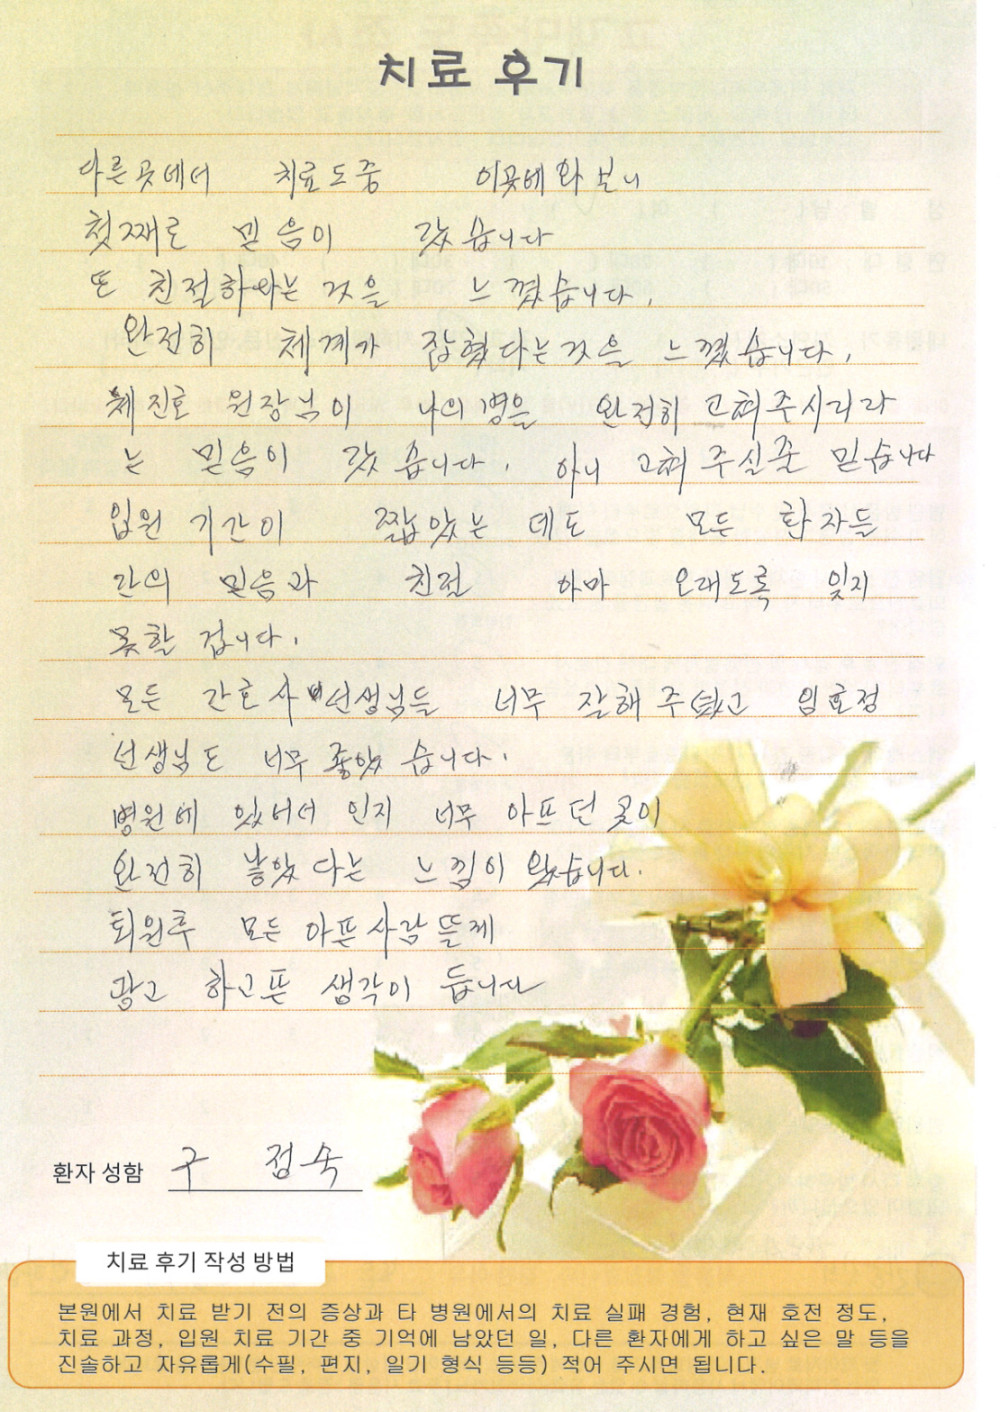 치료 후기
다른곳에서 치료도중 이곳에 와 보니
첫째로 믿음이 갔습니다
또 친절하다는 것을 느꼈습니다.
완전히 체계가 잡혔다는것을 느꼈습니다.
체진로 원장님이 나의병을 완전히 고쳐주시리라
는 믿음이 갔습니다. 아니 고쳐 주실줄 믿습니다
입원 기간이 짧았는 데도 모든 환자들
간의 믿음과 친절 아마 오래도록 잊지
못할 겁니다.
모든 간호사 선생님들 너무 잘해 주셨고 임효정
선생님도 너무 좋았습니다.
병원에 있어서 인지 너무 아프던 곳이
완전히 낳았다는 느낌이 왔습니다.
퇴원후 모든 아픈사람뜰게
광고 하고픈 생각이 듭니다
환자 성함 구 점숙
치료 후기 작성 방법
본원에서 치료 받기 전의 증상과 타 병원에서의 치료 실패 경험, 현재 호전 정도,
치료 과정, 입원 치료 기간 중 기억에 남았던 일, 다른 환자에게 하고 싶은 말 등을
진솔하고 자유롭게(수필, 편지, 일기 형식 등등) 적어 주시면 됩니다.